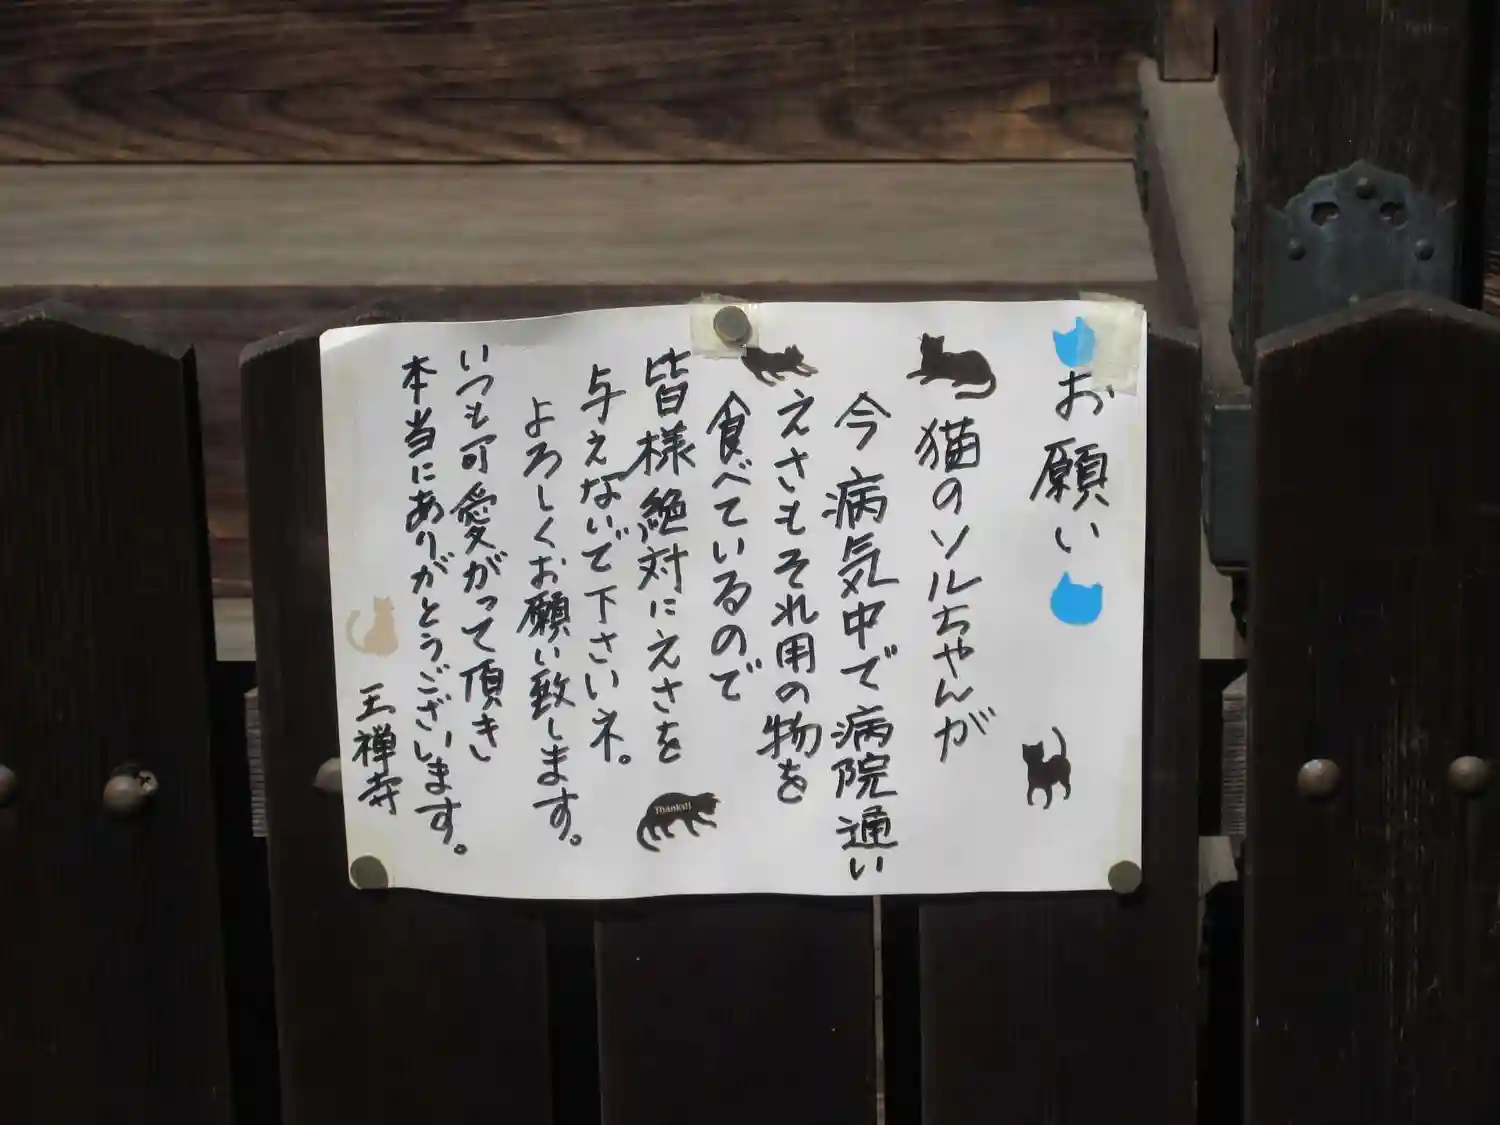 お願い
猫のソルちゃんが
今病気中で病院通い
えさもそれ用の物を
食べているので
皆様絶対にえさを
与えないで下さいネ。
よろしくお願い致します。
いつも可愛がって頂き
本当にありがとうございます。
玉禅寺
Thanks!!